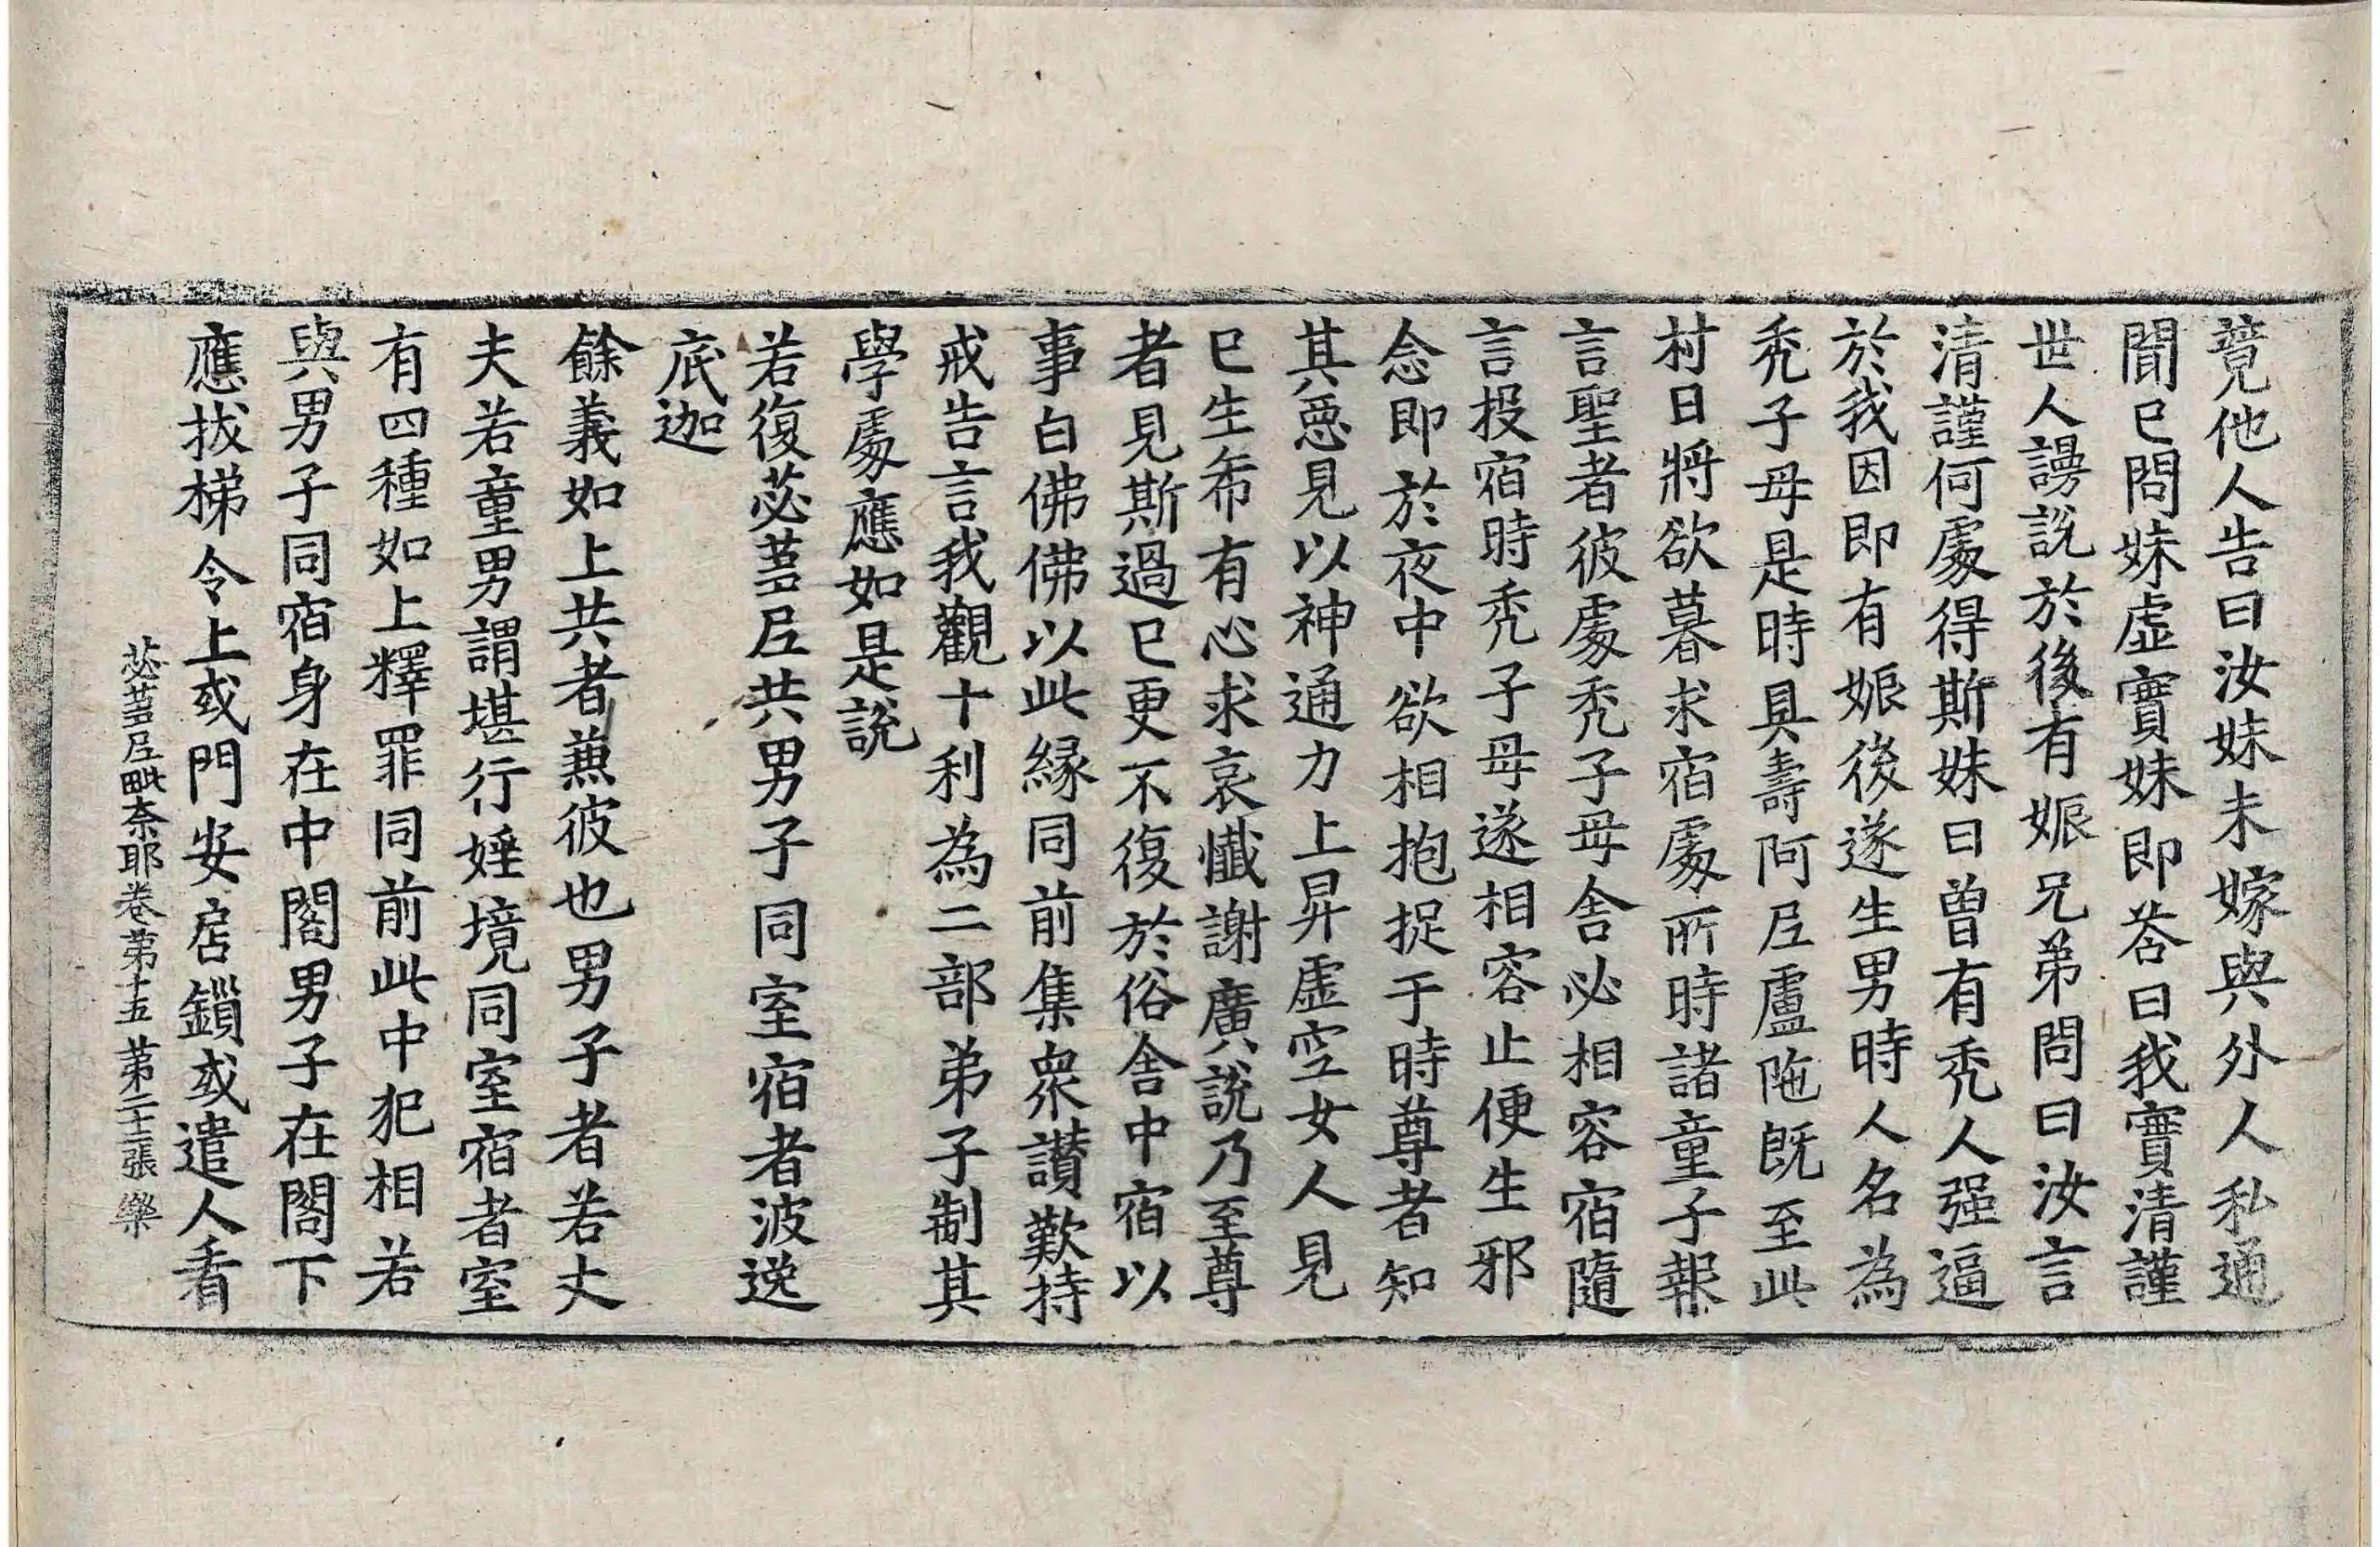 竟他人告曰汝妹未嫁與外人私通
聞已問妹虛實妹即荅曰我實清謹
世人謗說於後有娠兄弟問曰汝言
清謹何處得斯妹曰曾有禿人强逼
於我因即有娠後遂生男時人名為
禿子母是時具壽阿尼盧陁既至此
村日將欲暮求宿處所時諸童子報
言聖者彼處禿子母舍必相容宿隨
言投宿時禿子母遂相容止便生邪
念即於夜中欲相抱捉于時尊者知
其惡見以神通力上昇虛空女人見
已生希有心求哀懺謝廣說乃至尊
者見斯過已更不復於俗舍中宿以
事白佛佛以此緣同前集衆讃歎持
戒告言我觀十利為二部弟子制其
學處應如是說
若復苾蒭尼共男子同室宿者波逸
底迦
餘義如上共者兼彼也男子者若丈
夫若童男謂堪行婬境同室宿者室
有四種如上釋罪同前此中犯相若
與男子同宿身在中閣男子在閣下
應拔梯令上或門安居鎻或遣人看
苾蒭尼毗奈耶卷第十五 第二十二張 樂